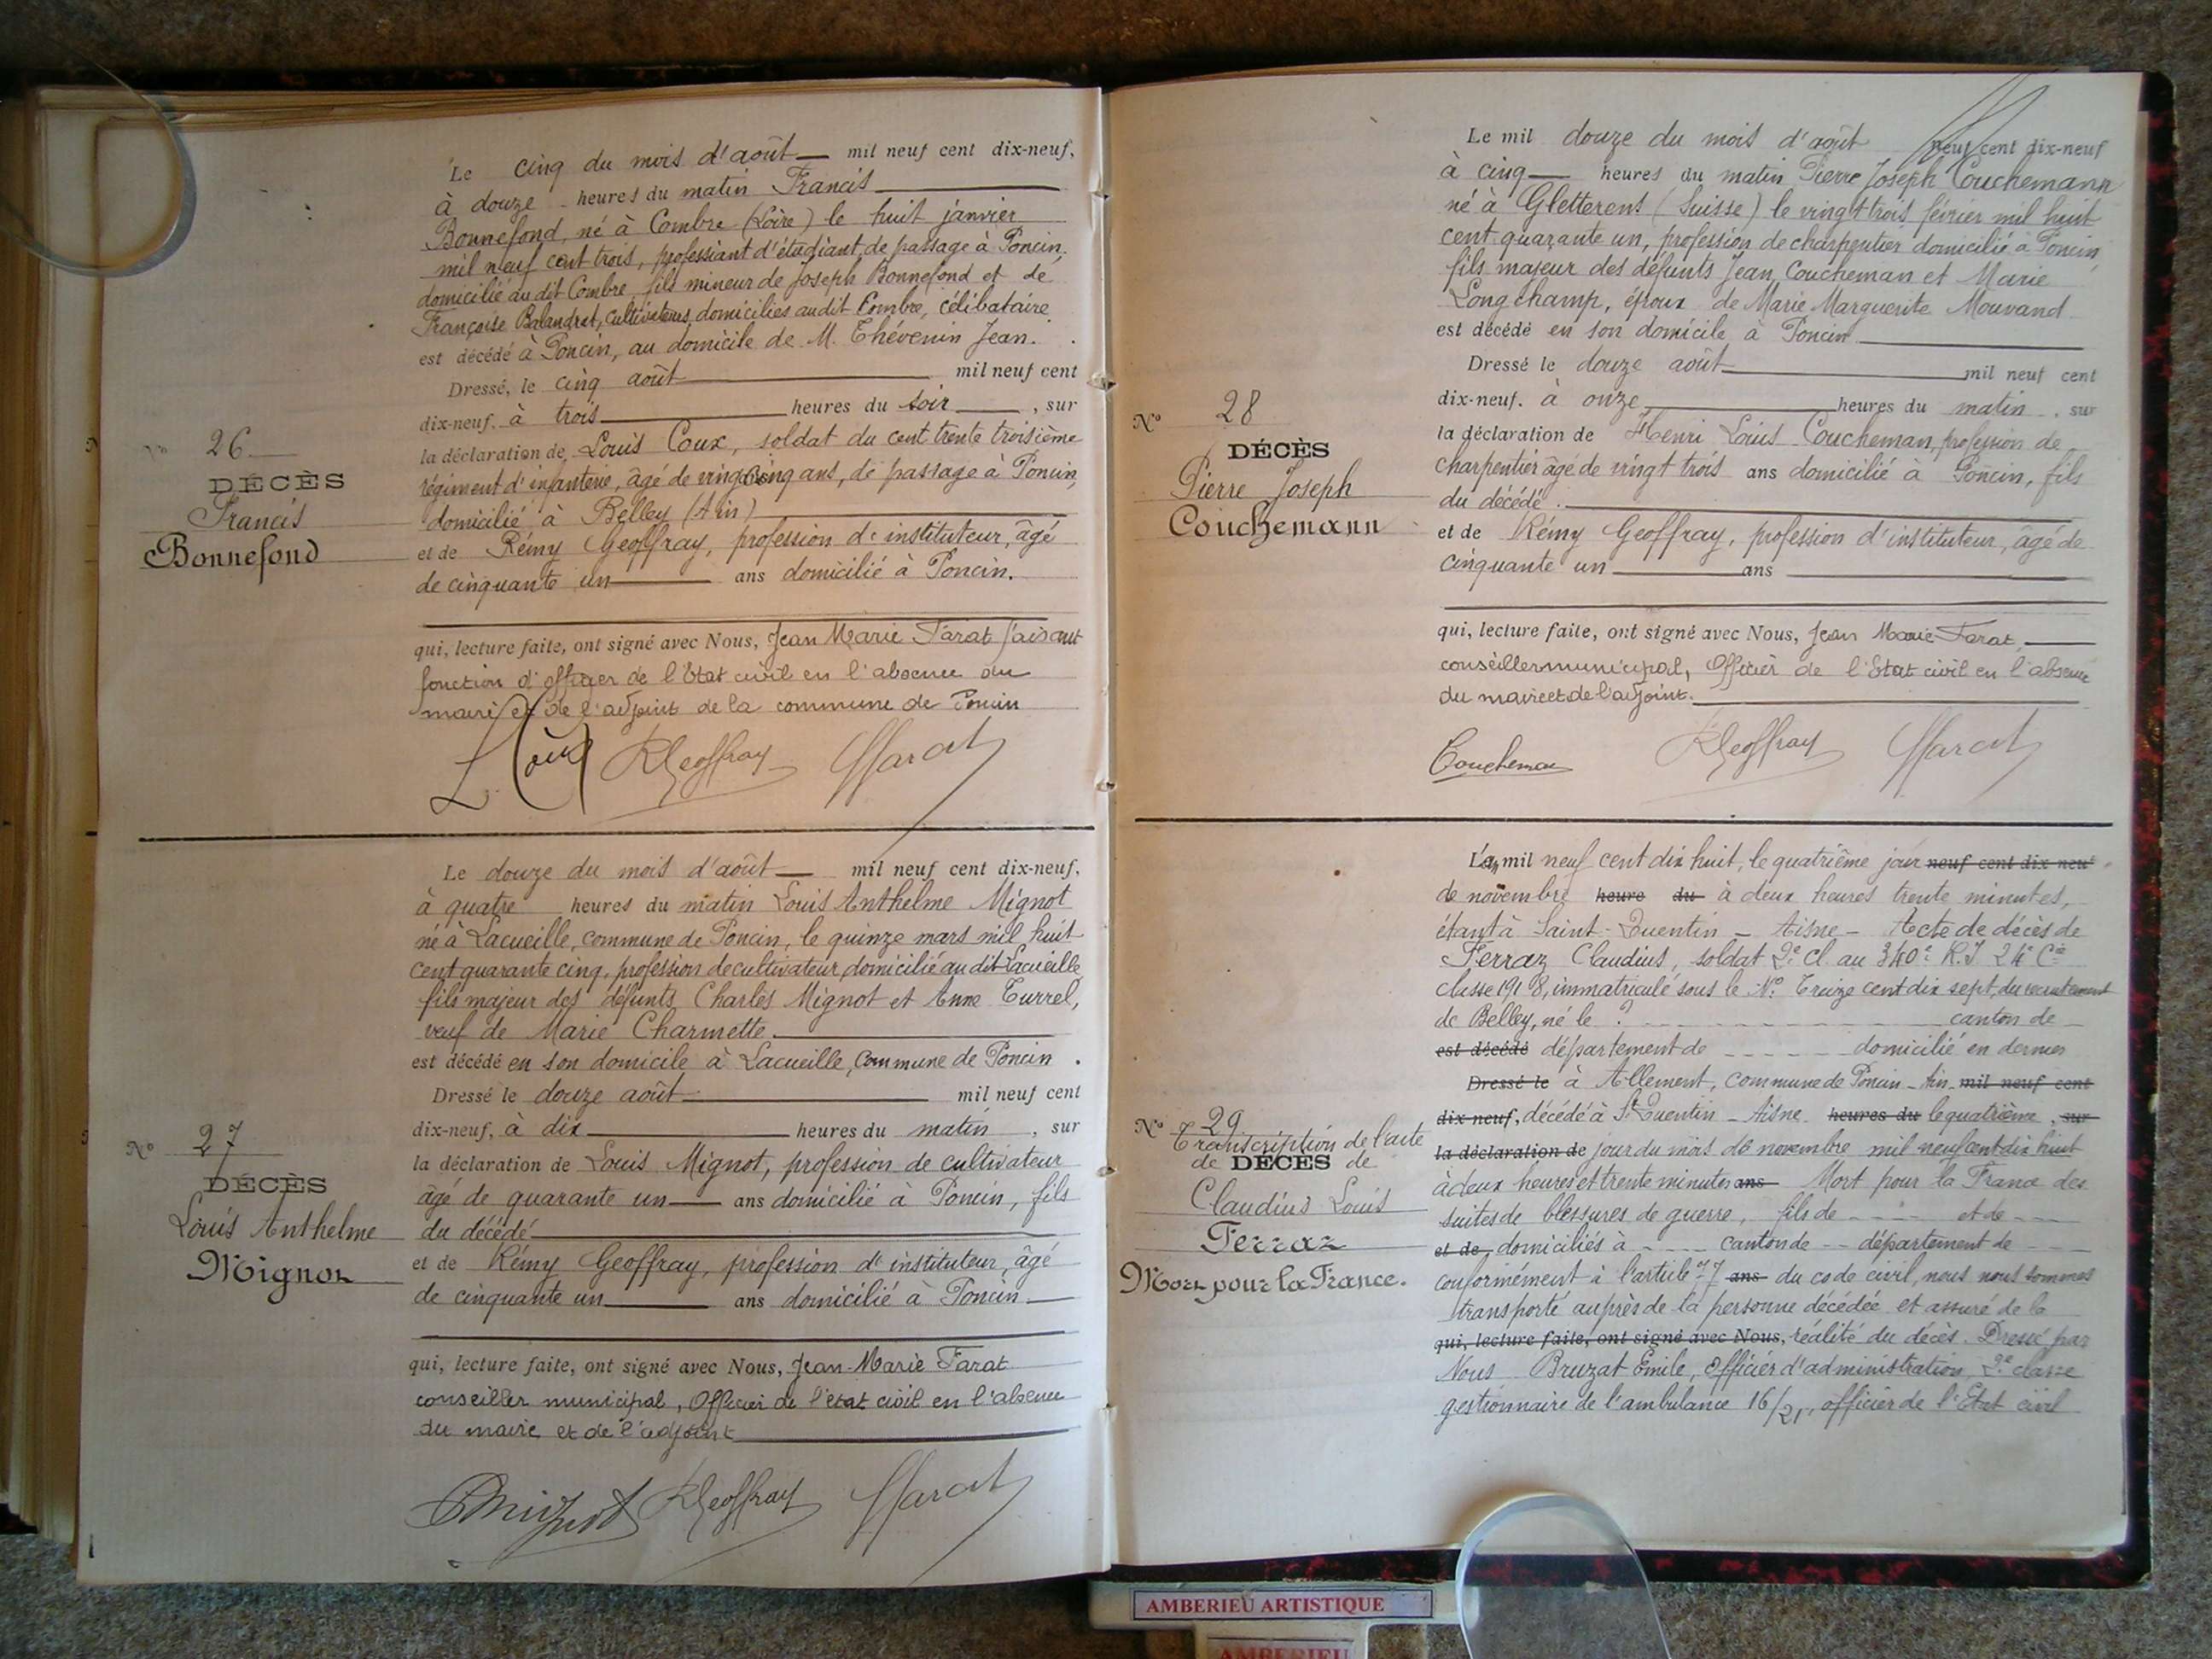 Le cinq du mois d'août — mil neuf cent dix-neuf,
à douze heures du matin Francis
Bonnefond, né à Combre (Loire) le huit janvier
mil neuf cent trois, professiant d'étudiant, de passage à Poncin,
domicilié au dit Combre, fils mineur de Joseph Bonnefond et de
Françoise Balandret, cultivateurs, domiciliés audit Combre, célibataire
est décédé à Poncin, au domicile de M. Thévenin Jean.
Dressé, le cinq août mil neuf cent
dix-neuf, à trois heures du soir, sur
la déclaration de Louis Coux, soldat du cent trente troisième
régiment d'infanterie, âgé de vingt cinq ans, de passage à Poncin,
domicilié à Belley (Ain)
et de Rémy Geoffray, profession d'instituteur, âgé
de cinquante un ans domicilié à Poncin.
qui, lecture faite, ont signé avec Nous, Jean Marie Farat faisant
fonction d'officier de l'Etat civil en l'absence du
maire et de l'adjoint de la commune de Poncin
L Coux RGeoffray Farat
26
DÉCÈS
Francis
Bonnefond
Le douze du mois d'août — mil neuf cent dix-neuf,
à quatre heures du matin Louis Anthelme Mignot
né à Lacueille, commune de Poncin, le quinze mars mil huit
cent quarante cinq, profession de cultivateur, domicilié au dit Lacueille
fils majeur des défunts Charles Mignot et Anne Turrel,
veuf de Marie Charmette
est décédé en son domicile à Lacueille, commune de Poncin.
Dressé le douze août mil neuf cent
dix-neuf, à dix heures du matin, sur
la déclaration de Louis Mignot, profession de cultivateur
âgé de quarante un — ans domicilié à Poncin, fils
du décédé
et de Rémy Geoffray, profession d'instituteur, âgé
de cinquante un ans domicilié à Poncin
qui, lecture faite, ont signé avec Nous, Jean-Marie Farat
conseiller municipal, Officier de l'état civil en l'absence
du maire et de l'adjoint
Mignot RGeoffray Farat
No 27
DÉCÈS
Louis Anthelme
Mignot
Le mil douze du mois d'août neuf cent dix-neuf
à cinq — heures du matin Pierre Joseph Couchemann
né à Gletterens (Suisse) le vingt trois février mil huit
cent quarante un, profession de charpentier domicilié à Poncin
fils majeur des défunts Jean Coucheman et Marie
Longchamp, époux de Marie Marguerite Mouvand
est décédé en son domicile à Poncin
Dressé le douze août mil neuf cent
dix-neuf. à onze heures du matin, sur
la déclaration de Henri Louis Coucheman, profession de
charpentier âgé de vingt trois ans domicilié à Poncin, fils
du décédé.
et de Rémy Geoffray, profession d'instituteur, âgé de
cinquante un ans
qui, lecture faite, ont signé avec Nous, Jean Marie Farat,
conseiller municipal, Officier de l'Etat civil en l'absence
du maire et de l'adjoint.
Coucheman RGeoffray Farat
No 28
DÉCÈS
Pierre Joseph
Couchemann
L'an mil neuf cent dix huit, le quatrième jour neuf cent dix neuf
de novembre heure du à deux heures trente minutes,
étant à Saint-Quentin – Aisne – Acte de décès de
Ferraz Claudius, soldat 2e Cl. au 340e R.I 24e Cie
classe 1918, immatriculé sous le No Treize cent dix sept, du recrutement
de Belley, né le ? canton de
est décédé département de domicilié en dernier
Dressé le à Allement, commune de Poncin – Ain mil neuf cent
dix neuf, décédé à St Quentin – Aisne heures du le quatrième, sur
la déclaration de jour du mois de novembre mil neuf cent dix huit
à deux heures et trente minutes ans Mort pour la France des
suites de blessures de guerre, fils de et de
et de, domiciliés à canton de département de
conformément à l'article 77 ans du code civil, nous nous sommes
transporté auprès de la personne décédée et assuré de la
qui, lecture faite, ont signé avec Nous, réalité du décès. Dressé par
Nous Bruzat Emile, Officier d'administration 2e classe
gestionnaire de l'ambulance 16/21, officier de l'Etat civil
No 29
Transcription de l'acte
de DÉCÈS de
Claudius Louis
Ferraz
Mort pour la France.
AMBERIEU ARTISTIQUE
AMBERIEU